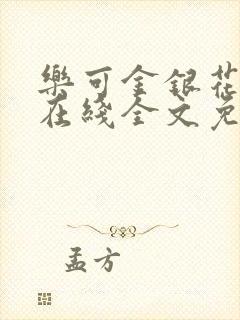 樂可金銀花
在綫全文免
孟方